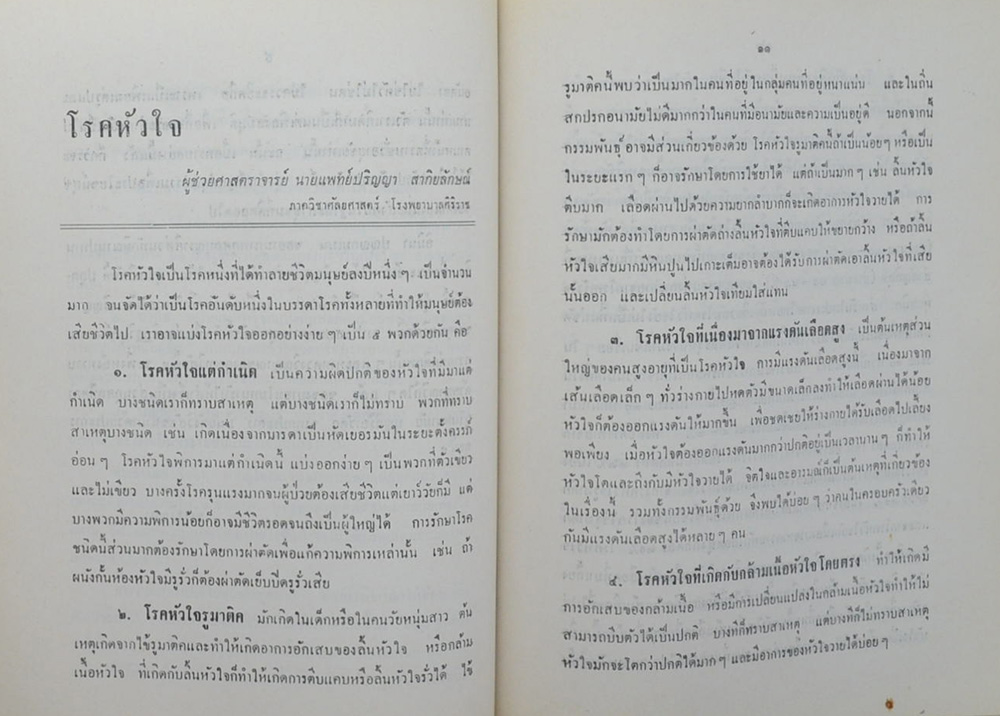 โรคหัวใจ
ผู้ช่วยศาสตราจารย์ นายแพทย์ปริญญา สากิยลักษณ์
ภาควิชาศัลยศาสตร์ โรงพยาบาลศิริราช
โรคหัวใจเป็นโรคหนึ่งที่ได้ทำลายชีวิตมนุษย์ลงปีหนึ่ง ๆ เป็นจำนวน
มาก จนจัดได้ว่าเป็นโรคอันดับหนึ่งในบรรดาโรคทั้งหลายที่ทำให้มนุษย์ต้อง
เสียชีวิตไป เราอาจแบ่งโรคหัวใจออกอย่างง่าย ๆ เป็น ๕ พวกด้วยกัน คือ
๑. โรคหัวใจแต่กำเนิด เป็นความผิดปกติของหัวใจที่มีมาแต่
กำเนิด บางชนิดเราก็ทราบสาเหตุ แต่บางชนิดเราก็ไม่ทราบ พวกที่ทราบ
สาเหตุบางชนิด เช่น เกิดเนื่องจากมารดาเป็นหัดเยอรมันในระยะตั้งครรภ์
อ่อน ๆ โรคหัวใจพิการมาแต่กำเนิดนี้ แบ่งออกง่าย ๆ เป็นพวกที่ตัวเขียว
และไม่เขียว บางครั้งโรครุนแรงมากจนผู้ป่วยต้องเสียชีวิตแต่เยาว์วัยก็มี แต่
บางพวกมีความพิการน้อยก็อาจมีชีวิตรอดจนถึงเป็นผู้ใหญ่ได้ การรักษาโรค
ชนิดนี้ส่วนมากต้องรักษาโดยการผ่าตัดเพื่อแก้ความพิการเหล่านั้น เช่น ถ้า
ผนังกั้นห้องหัวใจมีรูรั่วก็ต้องผ่าตัดเย็บปิดรูรั่วเสีย
๒. โรคหัวใจรูมาติค มักเกิดในเด็กหรือในคนวัยหนุ่มสาว ต้น
เหตุเกิดจากไข้รูมาติคและทำให้เกิดอาการอักเสบของลิ้นหัวใจ หรือกล้าม
เนื้อหัวใจ ที่เกิดกับลิ้นหัวใจก็ทำให้เกิดการตีบแคบหรือลิ้นหัวใจรั่วได้ ไข้
๑๑
รูมาติคนี้พบว่าเป็นมากในคนที่อยู่ในกลุ่มคนที่อยู่หนาแน่น และในถิ่น
สกปรกอนามัยไม่ดีมากกว่าในคนที่มีอนามัยและความเป็นอยู่ดี นอกจากนั้
กรรมพันธุ์อาจมีส่วนเกี่ยวข้องด้วย โรคหัวใจรูมาติคนี้ถ้าเป็นน้อยๆ หรือเป็น
ในระยะแรก ๆ ก็อาจรักษาโดยการใช้ยาได้ แต่ถ้าเป็นมาก ๆ เช่น ลิ้นหัวใจ
ตีบมาก เลือดผ่านไปด้วยความยากลำบากก็จะเกิดอาการหัวใจวายได้ การ
รักษามักต้องทำโดยการผ่าตัดถ่างลิ้นหัวใจที่ตีบแคบให้ขยายกว้าง หรือถ้าลิ้น
หัวใจเสียมากมีหินปูนไปเกาะเต็มอาจต้องได้รับการผ่าตัดเอาลิ้นหัวใจที่เสีย
นั้นออก และเปลี่ยนลิ้นหัวใจเทียมใส่แทน
๓. โรคหัวใจที่เนื่องมาจากแรงดันเลือดสูง เป็นต้นเหตุส่วน
ใหญ่ของคนสูงอายุที่เป็นโรคหัวใจ การมีแรงดันเลือดสูงนี้ เนื่องมาจาก
เส้นเลือดเล็ก ๆ ทั่วร่างกายไปหดตัวมีขนาดเล็กลงทำให้เลือดผ่านได้น้อย
หัวใจก็ต้องออกแรงดันให้มากขึ้น เพื่อชดเชยให้ร่างกายได้รับเลือดไปเลี้ยง
พอเพียง เมื่อหัวใจต้องออกแรงดันมากกว่าปกติอยู่เป็นเวลานาน ๆ ก็ทำให้
หัวใจโตและถึงกับมีหัวใจวายได้ จิตใจและอารมณ์ก็เป็นต้นเหตุที่เกี่ยวข้อง
ในเรื่องนี้ รวมทั้งกรรมพันธุ์ด้วย จึงพบได้บ่อยๆ ว่าคนในครอบครัวเดียว
กันมีแรงดันเลือดสูงได้หลายๆ คน
๔. โรคหัวใจที่เกิดกับกล้ามเนื้อหัวใจโดยตรง ทำให้เกิดมี
การอักเสบของกล้ามเนื้อ หรือมีการเปลี่ยนแปลงในกล้ามเนื้อหัวใจทำให้ไม่
สามารถบีบตัวได้เป็นปกติ บางทีก็ทราบสาเหตุ แต่บางทีก็ไม่ทราบสาเหตุ
หัวใจมักจะโตกว่าปกติได้มากๆ และมีอาการของหัวใจวายได้บ่อยๆ